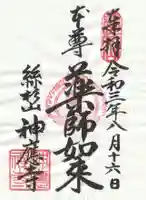 奉拝
令和三年八月十六日
本尊
薬師如来
神應寺